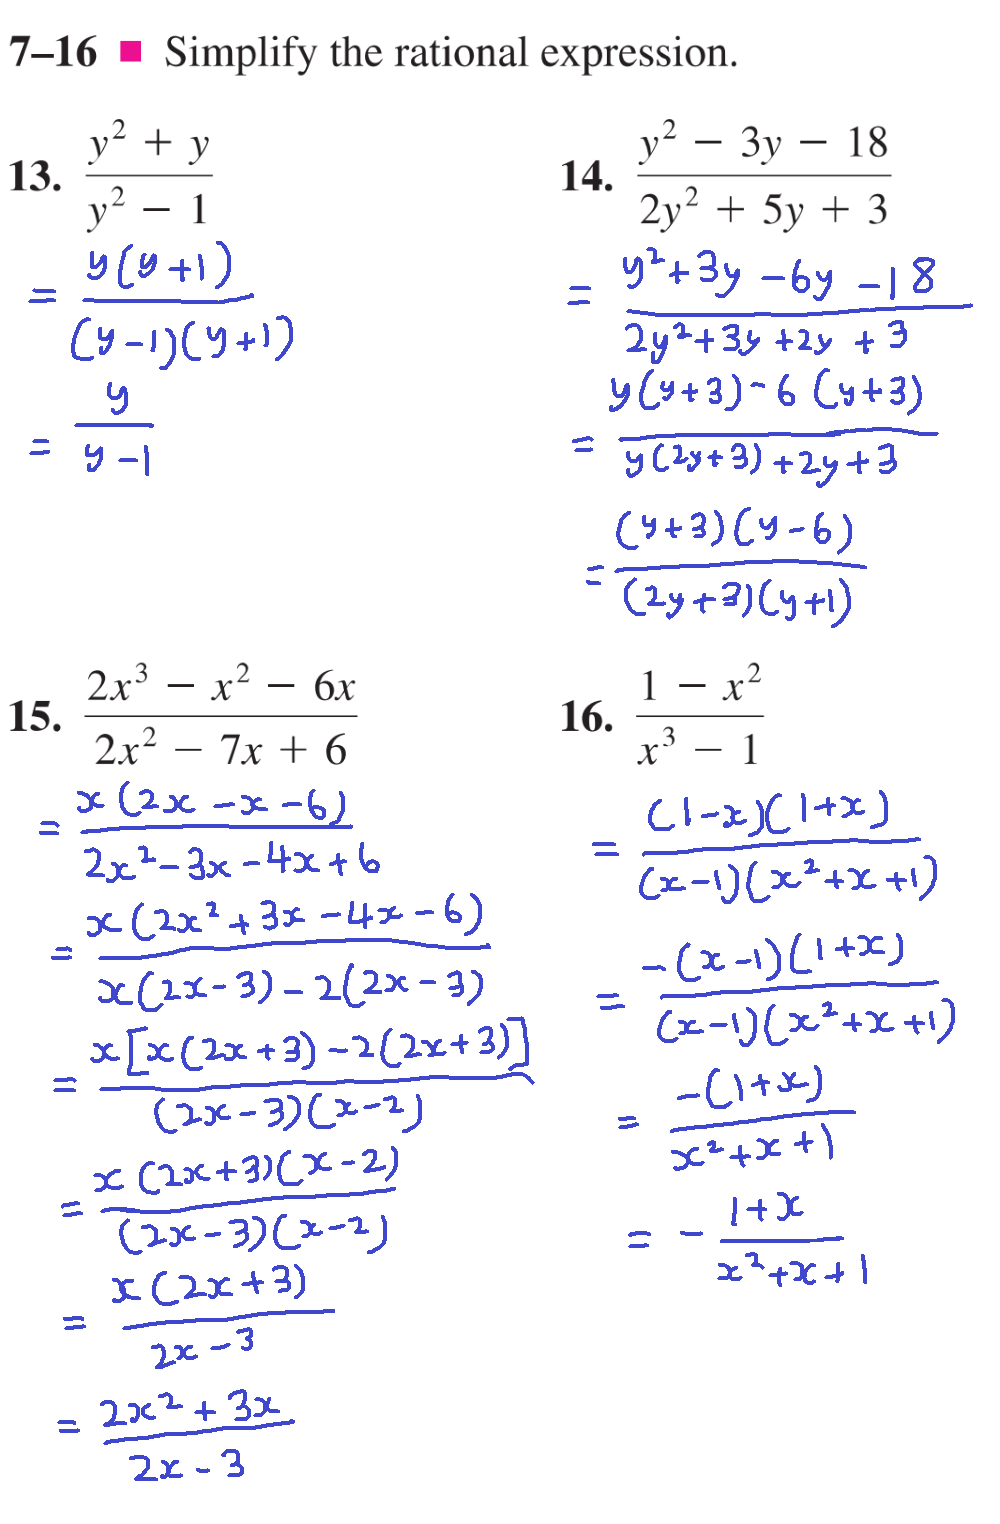 7–16 ■ Simplify the rational expression.
13. (y² + y)/(y² − 1)
= y(y+1)/((y−1)(y+1))
= y/(y−1)
14. (y² − 3y − 18)/(2y² + 5y + 3)
= (y²+3y−6y−18)/(2y²+3y+2y+3)
= (y(y+3)−6(y+3))/(y(2y+3)+2y+3)
= ((y+3)(y−6))/((2y+3)(y+1))
15. (2x³ − x² − 6x)/(2x² − 7x + 6)
= x(2x−x−6)/(2x²−3x−4x+6)
= x(2x²+3x−4x−6)/(x(2x−3)−2(2x−3))
= x[x(2x+3)−2(2x+3)]/((2x−3)(x−2))
= x(2x+3)(x−2)/((2x−3)(x−2))
= x(2x+3)/(2x−3)
= (2x²+3x)/(2x−3)
16. (1 − x²)/(x³ − 1)
= ((1−x)(1+x))/((x−1)(x²+x+1))
= −(x−1)(1+x)/((x−1)(x²+x+1))
= −(1+x)/(x²+x+1)
= − (1+x)/(x²+x+1)